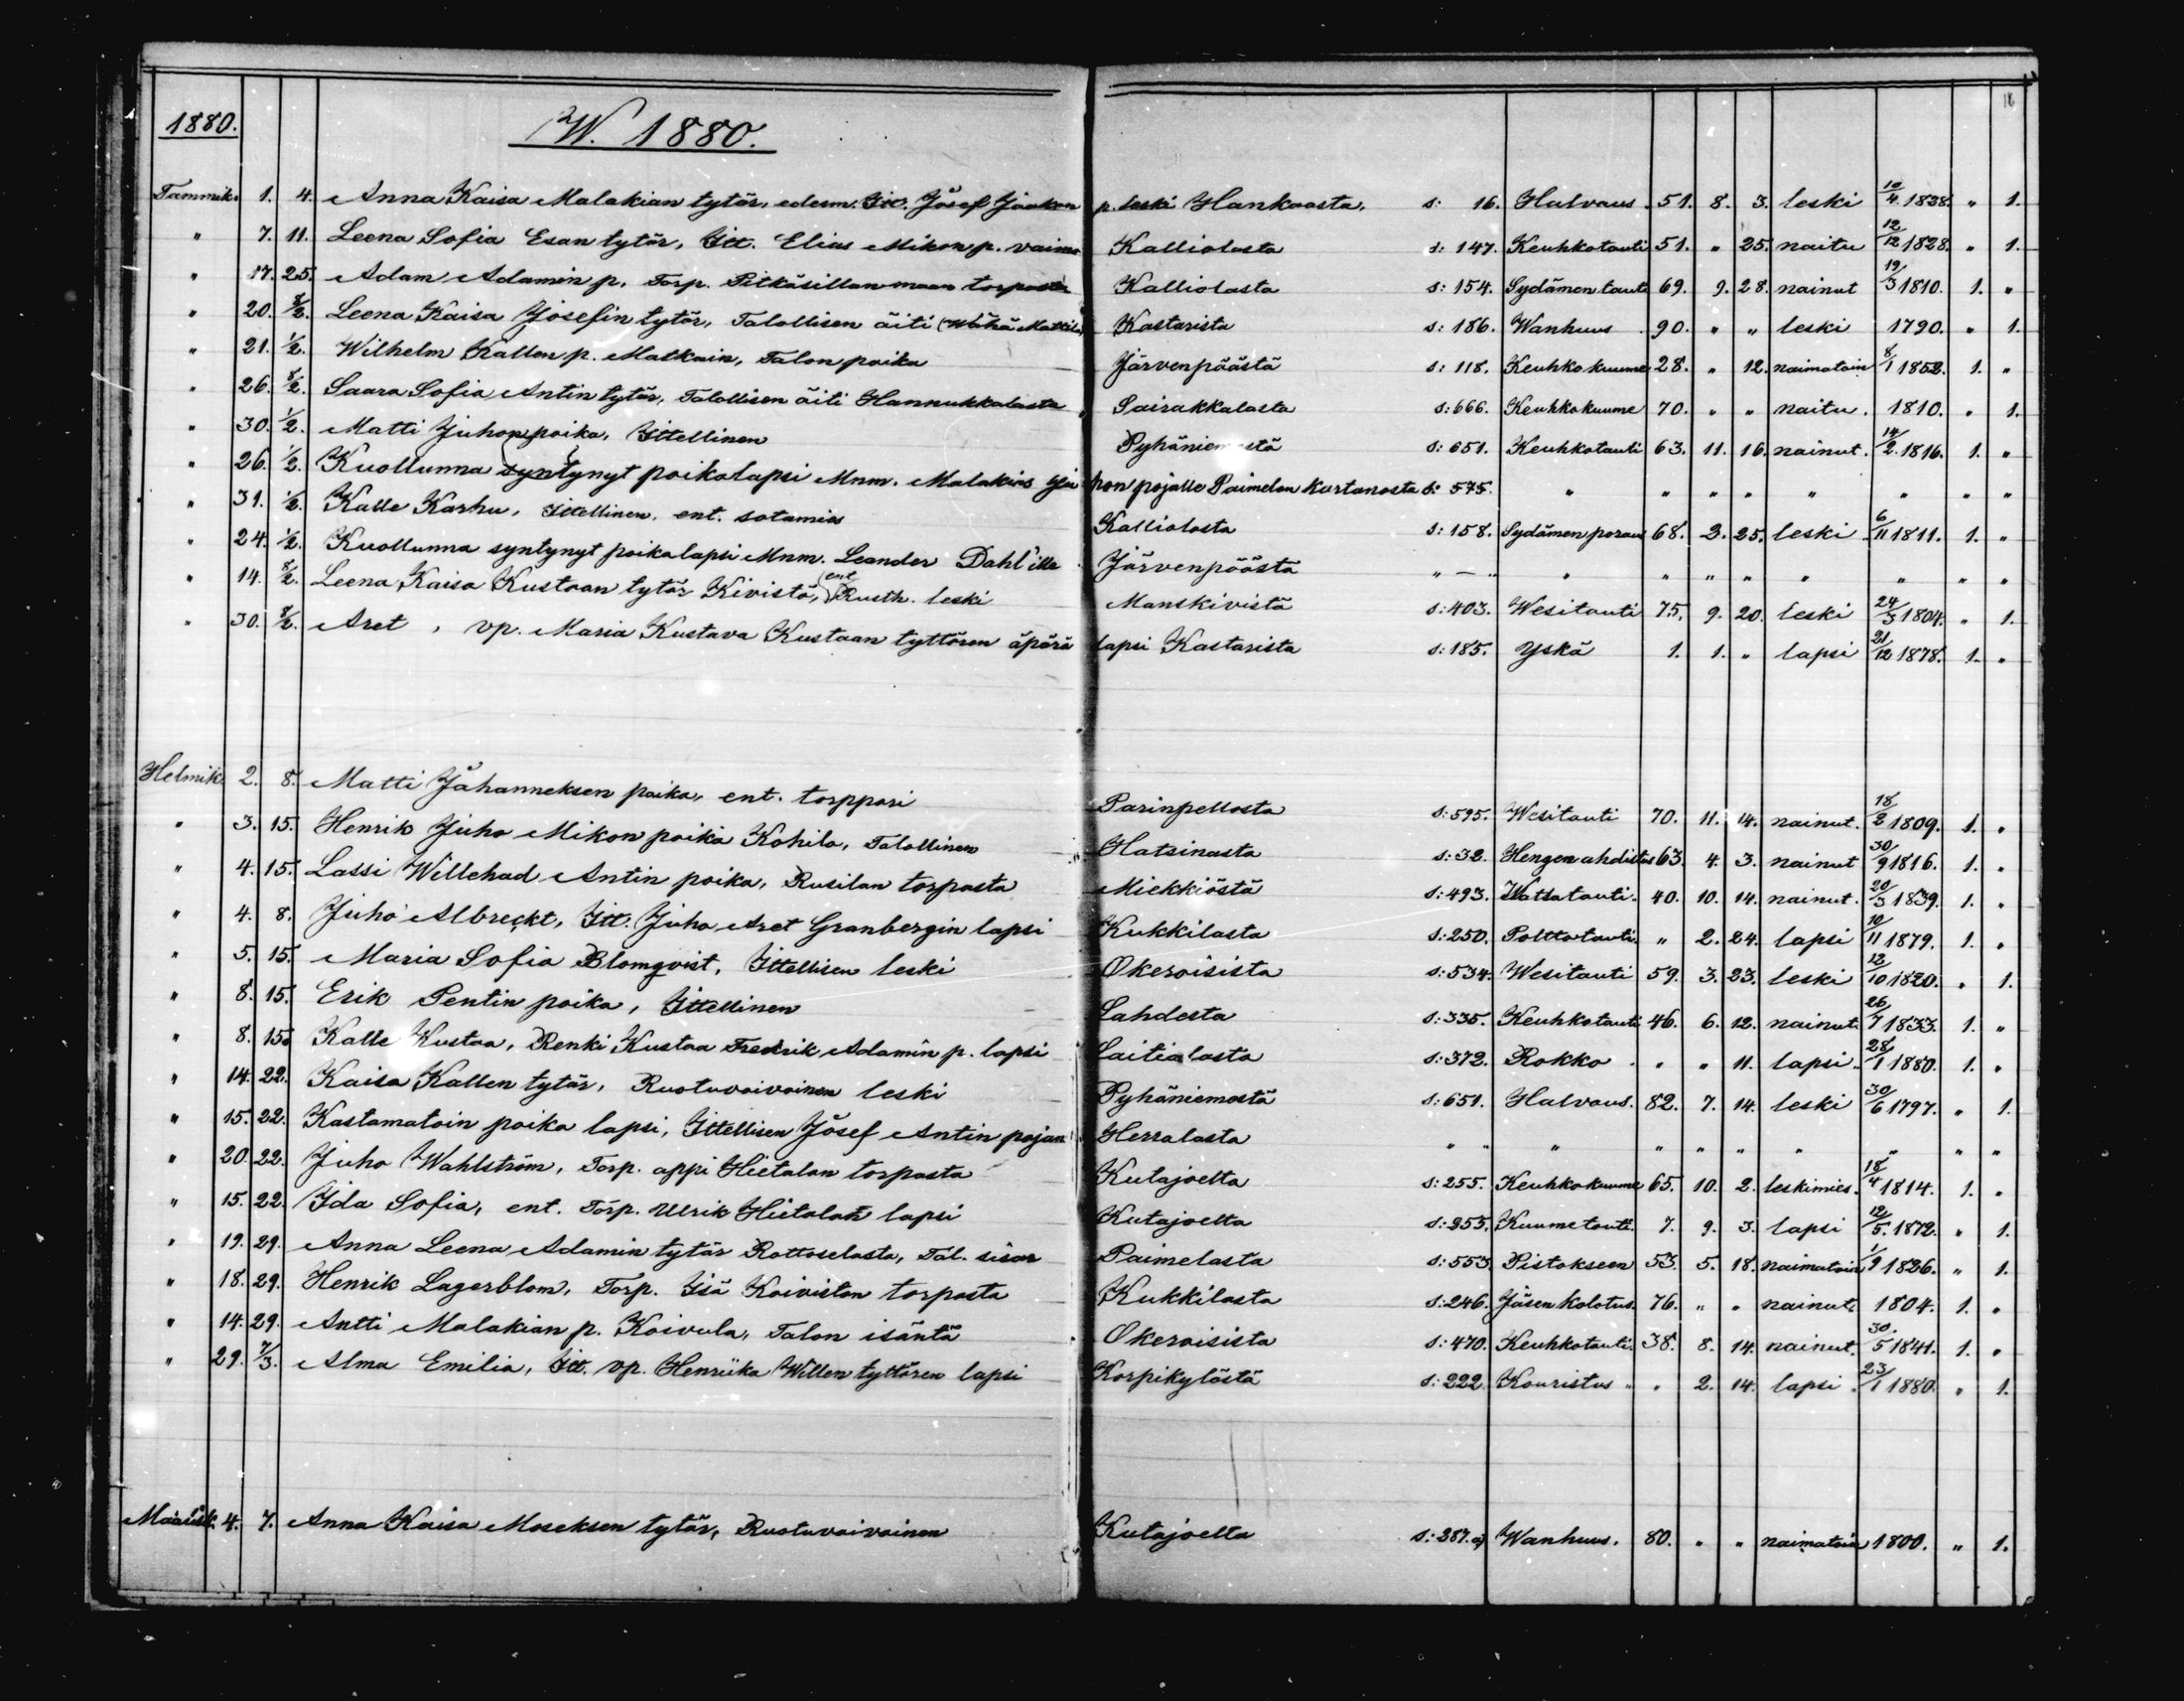 18
1880. W. 1880.
Tammik. 1. 4. Anna Kaisa Malakian tytär, edesm. Itt. Josef Jaakon p. leski Hankaasta, s: 16. Halvaus. 51. 8. 3. leski 10/4 1828. " 1.
" 7. 11. Leena Sofia Esan tytär, Itt. Elias Mikon p. vaimo Kalliolasta s: 147. Keuhkotauti 51. " 25. naitu 12/12 1828. " 1.
" 17. 25. Adam Adamin p. Torp. Pitkäsillanmaan torpasta Kalliolasta s: 154. Sydämen tauti 69. 9. 28. nainut 19/3 1810. 1. "
" 20. 8/2. Leena Kaisa Josefin tytär, Talollisen äiti (Wähä Mattila) Kastarista s: 186. Wanhuus 90. " " leski 1790. " 1.
" 21. 1/2. Wilhelm Kallen p. Matkain, Talon poika Järvenpäästä s: 118. Keuhkokuume 28. " 12. naimatoin 8/1 1852. 1. "
" 26. 8/2. Saara Sofia Antin tytär, Talollisen äiti Hannukkalasta Sairakkalasta s: 666. Keuhkokuume 70. " " naitu. 1810. " 1.
" 30. 1/2. Matti Juhon poika, Ittellinen Pyhäniemestä s: 651. Keuhkotauti 63. 11. 16. nainut. 14/2. 1816. 1. "
" 26. 1/2. Kuollunna syntynyt poikalapsi Mnm. Malakias Juhon pojalle Paimelan Kartanosta s: 575. " " " " " " " "
" 31. 1/2. Kalle Karhu, Ittellinen, ent. sotamies Kalliolasta s: 158. Sydämen poraus 68. 2. 25. leski 6/11 1811. 1. "
" 24. 1/2. Kuollunna syntynyt poikalapsi Mnm. Leander Dahl'ille Järvenpäästä " — " " " " " " " " "
" 14. 8/2. Leena Kaisa Kustaan tytär Kivistä, (ent. Rusth. leski Manskivistä s: 403. Wesitauti 75. 9. 20. leski 24/3 1804. " 1.
" 30. 8/2. Aret, vp. Maria Kustava Kustaan tyttären äpärä lapsi Kastarista s: 185. Yskä 1. 1. " lapsi 21/12 1878. 1. "
Helmik. 2. 8. Matti Johanneksen poika, ent. torppari Parinpellosta s: 595. Wesitauti 70. 11. 14. nainut. 18/2 1809. 1. "
" 3. 15. Henrik Juho Mikon poika Kohila, Talollinen Hatsinasta s: 32. Hengen ahdistus 63. 4. 3. nainut 30/9 1816. 1. "
" 4. 15. Lassi Willehad Antin poika, Rusilan torpasta Miekkiöstä s: 493. Watsatauti. 40. 10. 14. nainut. 20/3 1839. 1. "
" 4. 8. Juho Albreckt, Itt. Juho Aret Granbergin lapsi Kukkilasta s: 250. Polttotauti. " 2. 24. lapsi 10/11 1879. 1. "
" 5. 15. Maria Sofia Blomqvist, Ittellisen leski Okeroisista s: 534. Wesitauti 59. 3. 23. leski 12/10 1820. " 1.
" 8. 15. Erik Pentin poika, Ittellinen Lahdesta s: 335. Keuhkotauti 46. 6. 12. nainut. 26/7 1833. 1. "
" 8. 15. Kalle Kustaa, Renki Kustaa Fredrik Adamin p. lapsi Laitialasta s: 372. Rokko " " 11. lapsi. 28/1 1880. 1. "
" 14. 22. Kaisa Kallen tytär, Ruotuvaivainen leski Pyhäniemestä s: 651. Halvaus. 82. 7. 14. leski 30/6 1797. " 1.
" 15. 22. Kastamatoin poika lapsi, Ittellisen Josef Antin pojan Herralasta " " " " " " " " " "
" 20. 22. Juho Wahlström, Torp. appi Hietalan torpasta Kutajoelta s: 255. Keuhkokuume 65. 10. 2. leskimies. 18/4 1814. 1. "
" 15. 22. Ida Sofia, ent. Torp. Ulrik Hietalan lapsi Kutajoelta s: 255. Kuumetauti. 7. 9. 3. lapsi 12/5. 1872. " 1.
" 19. 29. Anna Leena Adamin tytär Rottoselasta, Tal. sisar Paimelasta s: 553. Pistokseen 53. 5. 18. naimatoin 1/9 1826. " 1.
" 18. 29. Henrik Lagerblom, Torp. Isä Koiviston torpasta Kukkilasta s: 246. Jäsen kolotus. 76. " " nainut. 1804. 1. "
" 14. 29. Antti Malakian p. Koivula, Talon isäntä Okeroisista s: 470. Keuhkotauti. 38. 8. 14. nainut. 30/5 1841. 1. "
" 29. 7/3. Alma Emilia, Itt. vp. Henriika Willen tyttären lapsi Korpikylästä s: 222. Kouristus " " 2. 14. lapsi " 23/1 1880. " 1.
Maalisk. 4. 7. Anna Kaisa Moseksen tytär, Ruotuvaivainen Kutajoelta s: 287. a) Wanhuus. 80. " " naimatoin 1800. " 1.